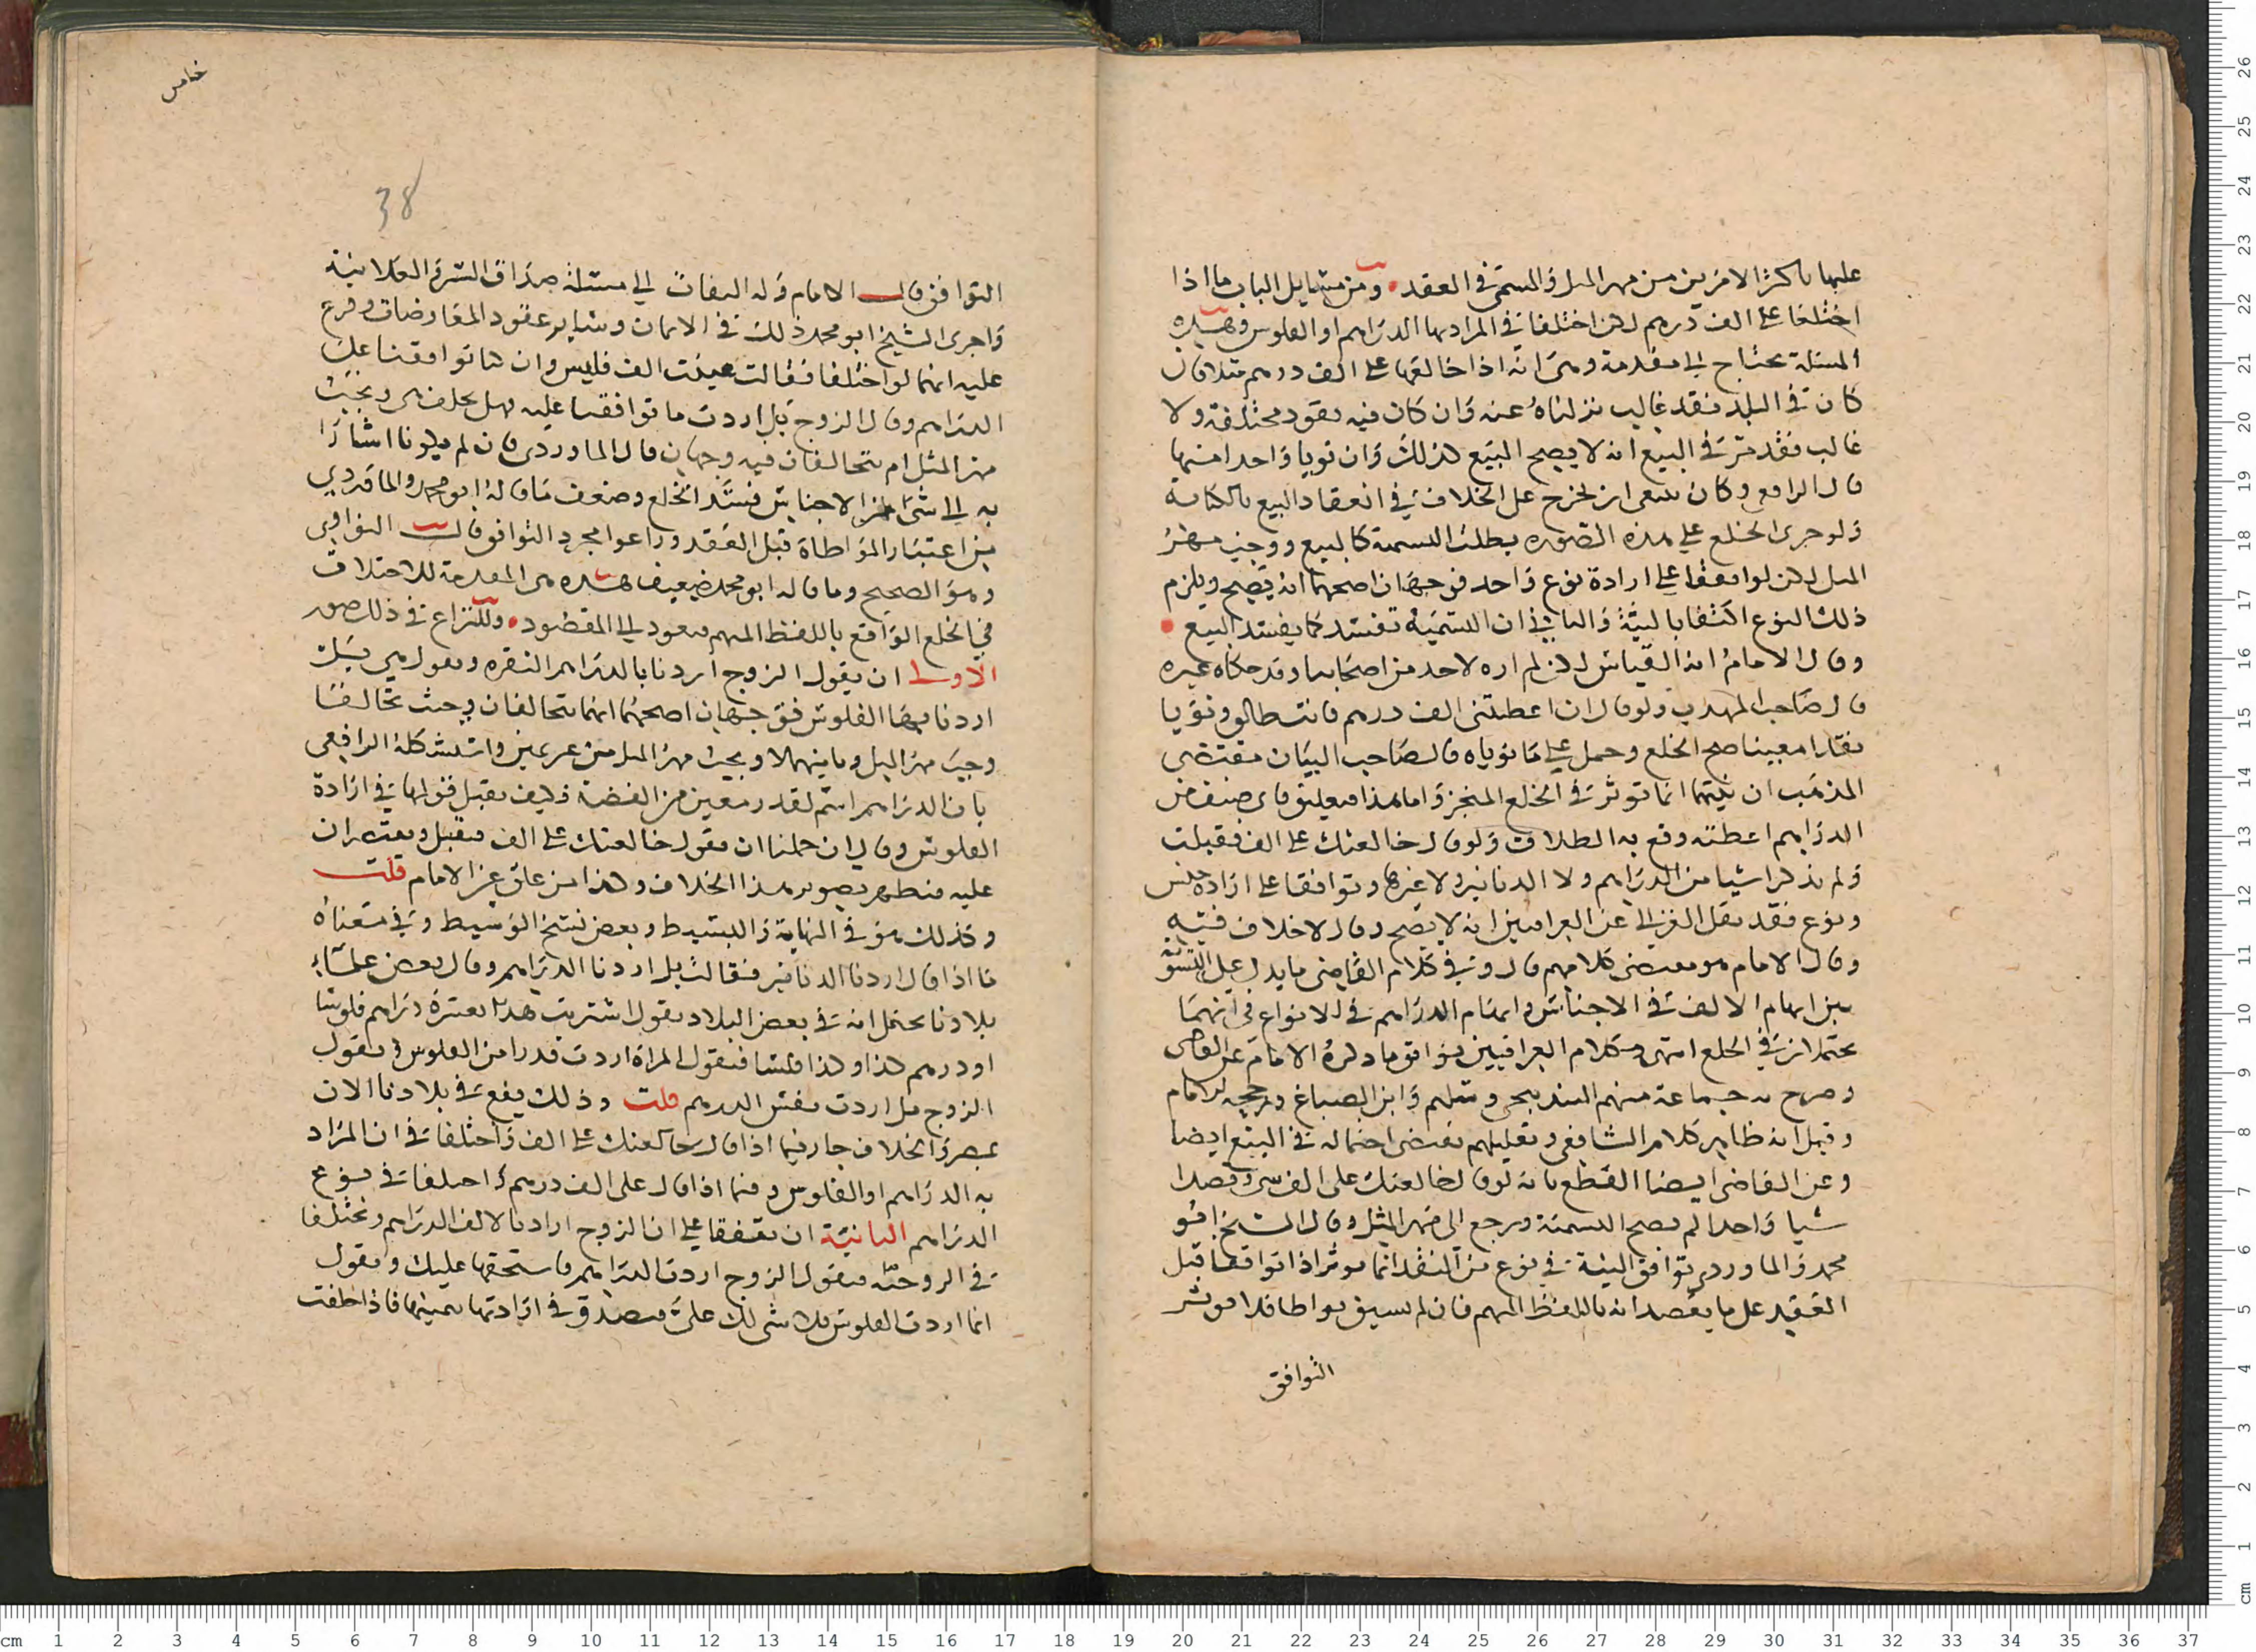 عليها باكثر الامرين من مهر المثل والمسمى في العقد ومن مسايل الباب ما اذا
اختلفا على الف درهم لكن اختلفا في المراد بها الدراهم او الفلوس وهذه
المسئلة تحتاج الى مقدمة وهي انه اذا خالعها على الف درهم مثلا فان
كان في البلد نقد غالب نزلناه عنه وان كان فيه نقود مختلفة ولا
غالب فقد مر في البيع انه لا يصح البيع كذلك وان نويا واحدا منها
قال الرافعي وكان ينبغي ان يخرج على الخلاف في انعقاد البيع بالكناية
ولو جرى الخلع على هذه الصورة بطلت التسمية كالبيع ووجب مهر
المثل لكن لو اتفقا على ارادة نوع واحد فوجهان اصحهما انه يصح ويلزم
ذلك النوع اكتفا بالنية والثاني ان التسمية تفسد كما يفسد البيع
وقال الامام انه القياس لكن لم اره لاحد من اصحابنا وقد حكاه غيره
قال صاحب المهذب ولو قال ان اعطيتني الف درهم فانت طالق ونويا
نقدا معينا صح الخلع وحمل على ما نوياه قال صاحب البيان مقتضى
المذهب ان نيتهما انما توثر في الخلع المنجز واما هذا فيعليق فاي صنف من
الدراهم اعطته وقع به الطلاق ولو قال خالعتك على الف فقبلت
ولم يذكرا شيا من الدراهم ولا الدنانير ولا غيرها وتوافقا على ارادة جنس
ونوع فقد نقل الغزالي عن العراقيين انه لا يصح وقال لا خلاف فيه
وقال الامام هو مقتضى كلامهم قال وفي كلام القاضي ما يدل على التسوية
بين ابهام الالف في الاجناس وابهام الدراهم في الانواع في انهما
يحتملان في الخلع انتهى وكلام العراقيين يوافق ما ذكره الامام عن القاضي
وصرح به جماعة منهم البندنيجي وسليم وابن الصباغ ورجحه الامام
وقيل انه ظاهر كلام الشافعي وتعليلهم يقتضي احتماله في البيع ايضا
وعن القاضي ايضا القطع بانه لو قال خالعتك على الف شي وقصدا
شيا واحدا لم تصح التسمية ورجع الى مهر المثل وقال الشيخ ابو
محمد والماوردي توافق النية في نوع من النقد انما يوثر اذا تواقفا قبل
العقد على ما يقصدانه باللفظ المبهم فان لم يسبق تواطا فلا يوثر
التوافق
خامس
38
التوافق قال الامام وله التفات الى مسئلة صداق السر والعلانية
واجرى الشيخ ابو محمد ذلك في الاثمان وساير عقود المعاوضات وفرع
عليه انهما لو اختلفا فقالت عينت الف فليس وان كنا توافقنا على
الدراهم وقال الزوج بل اردت ما توافقنا عليه فهل يحلف هي ويجب
مهر المثل ام يتحالفان فيه وجهان قال الماوردي فان لم يكونا اشارا
به الى شي من الاجناس فسد الخلع وضعف ما قاله ابو محمد والماوردي
من اعتبار المواطاة قبل العقد وراعوا مجرد التوافق قال النواوي
وهو الصحيح وما قاله ابو محمد ضعيف هذه هي المقدمة للاختلاف
في الخلع الواقع باللفظ المبهم فيعود الى المقصود وللتنازع في ذلك صور
الاولى ان يقول الزوج اردنا بالدراهم النقرة وتقول هي بل
اردنا بها الفلوس فوجهان اصحهما انهما يتحالفان وحيث تحالفا
وجب مهر المثل وثانيهما لا ويجب مهر المثل من غير يمين واستشكله الرافعي
بان الدراهم اسم لقدر معين من الفضة فكيف يقبل قولها في ارادة
الفلوس وقال ان حملنا ان يقول خالعتك على الف فيقبل ويقتصران
عليه فيظهر تصوير هذا الخلاف وكذا من علق عن الامام قلت
وكذلك هو في النهاية والبسيط وبعض نسخ الوسيط وفي معناه
ما اذا قال اردنا الدنانير فقالت بل اردنا الدراهم وقال بعض علماء
بلادنا يحتمل انه في بعض البلاد يقول اشتريت هذا بعشرة دراهم فلوسا
او درهم كذا وكذا فلسا فتقول المراة اردت قدرا من الفلوس ويقول
الزوج بل اردت نفس الدرهم قلت وذلك يقع في بلادنا الان
بمصر والخلاف جار فيما اذا قال خالعتك على الف واختلفا في ان المراد
به الدراهم او الفلوس وفيما اذا قال على الف درهم واختلفا في نوع
الدراهم الثانية ان يتفقا على ان الزوج اراد بالالف الدراهم ويختلفا
في الزوجة فيقول الزوج اردت الدراهم فاستحقها عليك وتقول
انما اردت الفلوس فلا شي لك علي فيصدق في ارادتها بيمينها فاذا حلفت